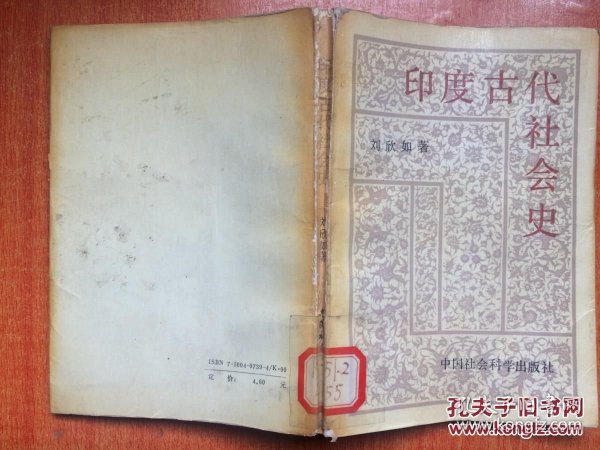 印度古代
社会史
刘欣如著
中国社会科学出版社
刘欣如著
ISBN 7-5004-0739-4/K·90
定价: 4.60 元
51.2
55
孔夫子旧书网
www.kongfz.com